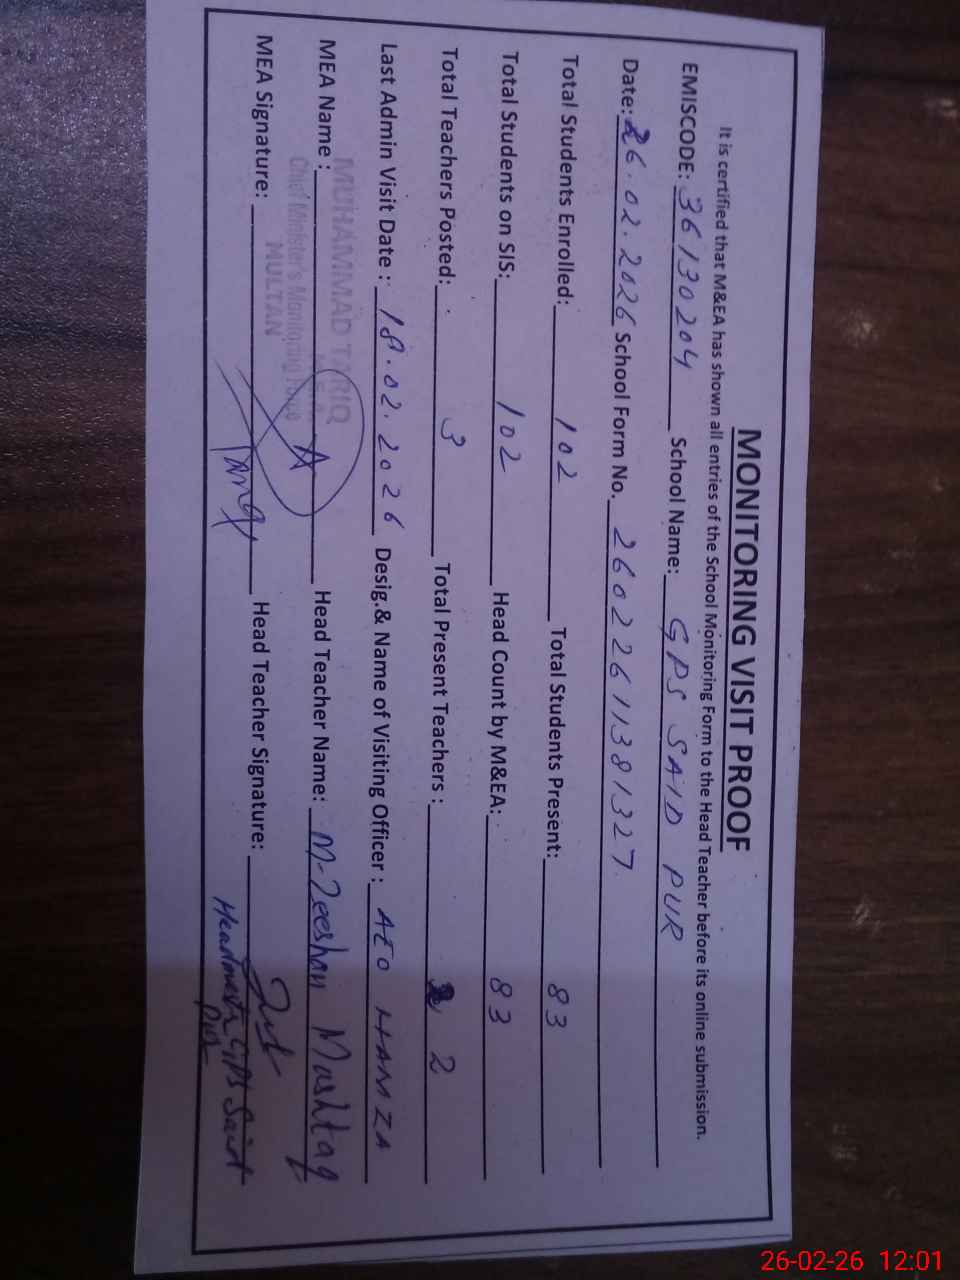 MONITORING VISIT PROOF
It is certified that M&EA has shown all entries of the School Monitoring Form to the Head Teacher before its online submission.
EMISCODE: 36130204 School Name: GPS SAID PUR
Date: 26.02.2026 School Form No. 26022611381327
Total Students Enrolled: 102 Total Students Present: 83
Total Students on SIS: 102 Head Count by M&EA: 83
Total Teachers Posted: 3 Total Present Teachers : 2
Last Admin Visit Date : 18.02.2026 Desig.& Name of Visiting Officer : AEO HAMZA
MUHAMMAD TARIQ
MEA Name : Head Teacher Name: M-Zeeshan Mushtaq
Chief Minister's Monitoring Force
MULTAN
MEA Signature: Head Teacher Signature:
Headmaster GPS Said
Pur
26-02-26 12:01